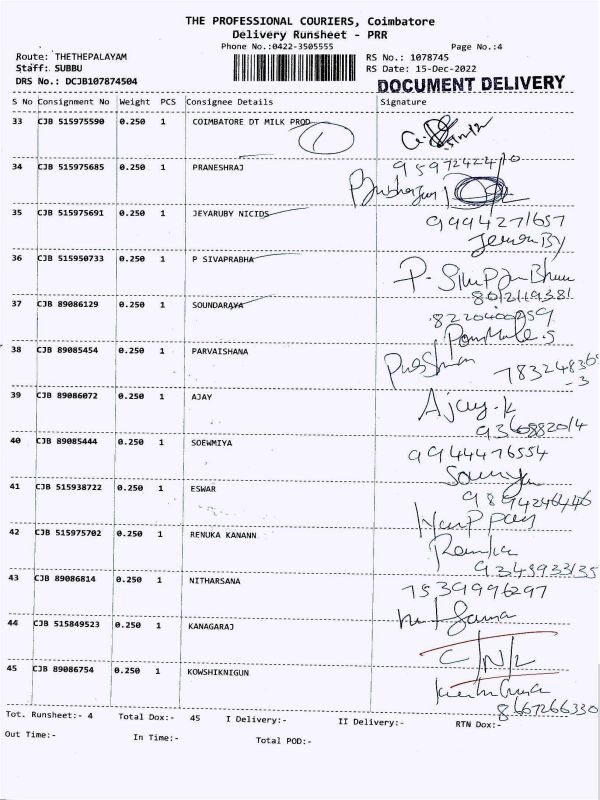 THE PROFESSIONAL COURIERS, Coimbatore
Delivery Runsheet - PRR
Phone No.:0422-3505555 Page No.:4
Route: THETHEPALAYAM RS No.: 1078745
Staff: SUBBU RS Date: 15-Dec-2022
DRS No.: DCJB107874504 DOCUMENT DELIVERY
S No Consignment No Weight PCS Consignee Details Signature
33 CJB 515975590 0.250 1 COIMBATORE DT MILK PROD
1
34 CJB 515975685 0.250 1 PRANESHRAJ
35 CJB 515975691 0.250 1 JEYARUBY NICIDS 9994271657
36 CJB 515950733 0.250 1 P SIVAPRABHA
8012119381
37 CJB 89086129 0.250 1 SOUNDARAYA 8220400259
38 CJB 89085454 0.250 1 PARVAISHANA
39 CJB 89086072 0.250 1 AJAY Ajay.k
40 CJB 89085444 0.250 1 SOEWMIYA 9944476554
41 CJB 515938722 0.250 1 ESWAR
42 CJB 515975702 0.250 1 RENUKA KANANN
43 CJB 89086814 0.250 1 NITHARSANA 7539996297
44 CJB 515849523 0.250 1 KANAGARAJ
C/N/L
45 CJB 89086754 0.250 1 KOWSHIKNIGUN
8667266330
Tot. Runsheet:- 4 Total Dox:- 45 I Delivery:- II Delivery:- RTN Dox:-
Out Time:- In Time:- Total POD:-